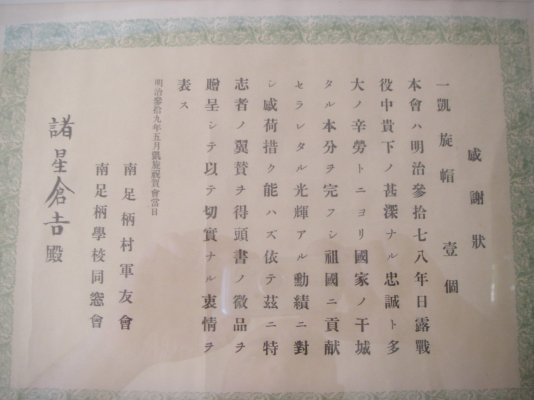 感謝狀
一凱旋帽 壹個
本會ハ明治參拾七八年日露戰
役中貴下ノ甚深ナル忠誠ト多
大ノ辛勞トニヨリ國家ノ干城
タル本分ヲ完フシ祖國ニ貢献
セラレタル光輝アル勳績ニ對
シ感荷措ク能ハズ依テ茲ニ特
志者ノ翼賛ヲ得頭書ノ微品ヲ
贈呈シテ以テ切實ナル衷情ヲ
表ス
明治參拾九年五月凱旋祝賀會當日
南足柄村軍友會
南足柄學校同窓會
諸星倉吉殿